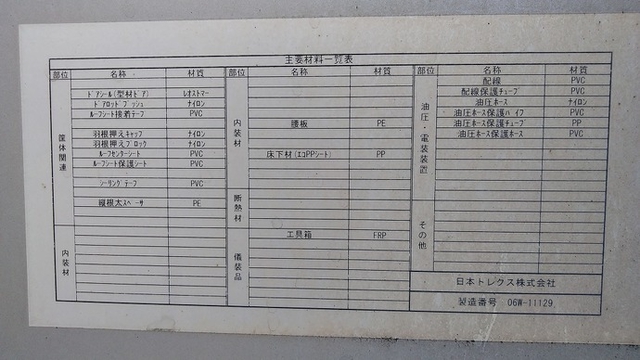 主要材料一覧表
部位 名称 材質 部位 名称 材質 部位 名称 材質
筐体関連
ドアシール(型材ドア) レオストマー
ドアロッドブッシュ ナイロン
ルーフシート接着テープ PVC
羽根押えキャップ ナイロン
羽根押えブロック ナイロン
ルーフセンターシート PVC
ルーフシート保護シート PVC
シーリングテープ PVC
縦根太スペーサ PE
内装材
内装材
腰板 PE
床下材(エコPPシート) PP
断熱材
儀装品
工具箱 FRP
油圧・電装装置
配線 PVC
配線保護チューブ PVC
油圧ホース ナイロン
油圧ホース保護パイプ PVC
油圧ホース保護チューブ PP
油圧ホース保護ホース PVC
その他
日本トレクス株式会社
製造番号 06W-11129